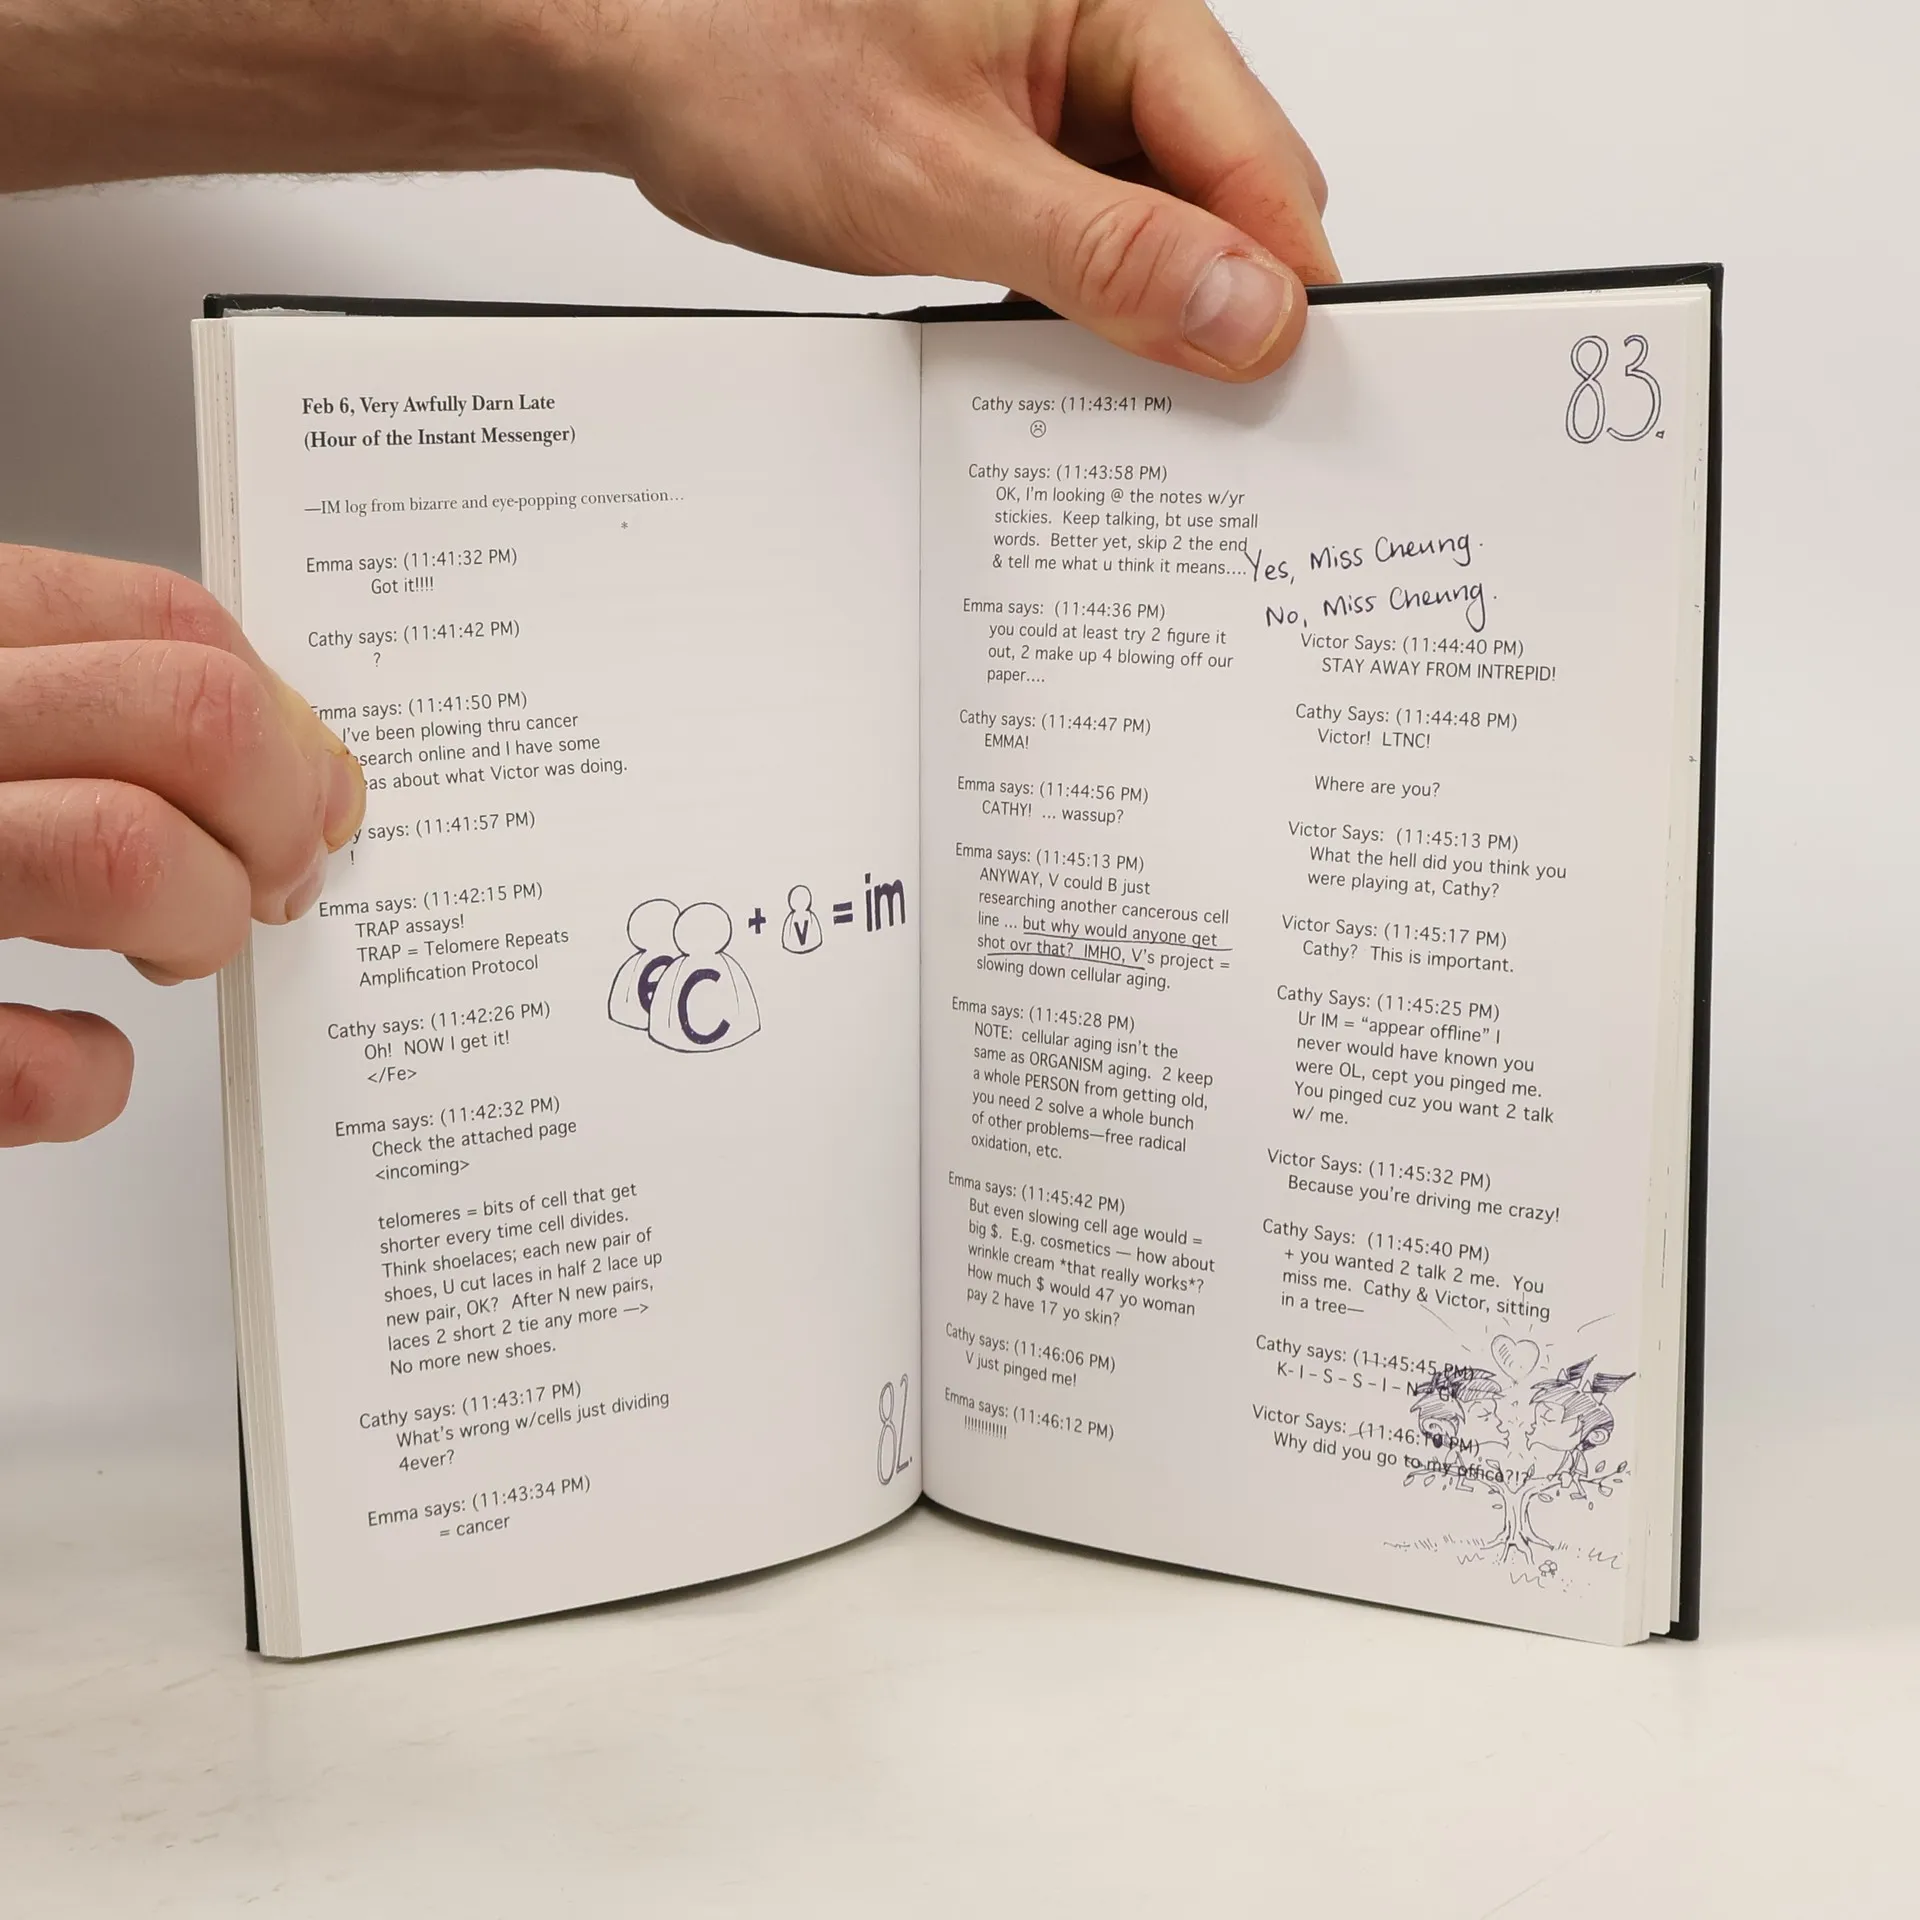 Feb 6, Very Awfully Darn Late
(Hour of the Instant Messenger)
—IM log from bizarre and eye-popping conversation…
*
Emma says: (11:41:32 PM)
Got it!!!!
Cathy says: (11:41:42 PM)
?
Emma says: (11:41:50 PM)
I've been plowing thru cancer
search online and I have some
eas about what Victor was doing.
y says: (11:41:57 PM)
!
Emma says: (11:42:15 PM)
TRAP assays!
TRAP = Telomere Repeats
Amplification Protocol
Cathy says: (11:42:26 PM)
Oh! NOW I get it!
</Fe>
Emma says: (11:42:32 PM)
Check the attached page
<incoming>
telomeres = bits of cell that get
shorter every time cell divides.
Think shoelaces; each new pair of
shoes, U cut laces in half 2 lace up
new pair, OK? After N new pairs,
laces 2 short 2 tie any more —>
No more new shoes.
Cathy says: (11:43:17 PM)
What's wrong w/cells just dividing
4ever?
Emma says: (11:43:34 PM)
= cancer
e C + v = im
82.
83.
Cathy says: (11:43:41 PM)
☹
Cathy says: (11:43:58 PM)
OK, I'm looking @ the notes w/yr
stickies. Keep talking, bt use small
words. Better yet, skip 2 the end
& tell me what u think it means....
Yes, Miss Cheung.
No, Miss Cheung.
Emma says: (11:44:36 PM)
you could at least try 2 figure it
out, 2 make up 4 blowing off our
paper....
Cathy says: (11:44:47 PM)
EMMA!
Emma says: (11:44:56 PM)
CATHY! ... wassup?
Emma says: (11:45:13 PM)
ANYWAY, V could B just
researching another cancerous cell
line ... but why would anyone get
shot ovr that? IMHO, V's project =
slowing down cellular aging.
Emma says: (11:45:28 PM)
NOTE: cellular aging isn't the
same as ORGANISM aging. 2 keep
a whole PERSON from getting old,
you need 2 solve a whole bunch
of other problems—free radical
oxidation, etc.
Emma says: (11:45:42 PM)
But even slowing cell age would =
big $. E.g. cosmetics — how about
wrinkle cream *that really works*?
How much $ would 47 yo woman
pay 2 have 17 yo skin?
Cathy says: (11:46:06 PM)
V just pinged me!
Emma says: (11:46:12 PM)
!!!!!!!!!!!!
Victor Says: (11:44:40 PM)
STAY AWAY FROM INTREPID!
Cathy Says: (11:44:48 PM)
Victor! LTNC!
Where are you?
Victor Says: (11:45:13 PM)
What the hell did you think you
were playing at, Cathy?
Victor Says: (11:45:17 PM)
Cathy? This is important.
Cathy Says: (11:45:25 PM)
Ur IM = “appear offline” I
never would have known you
were OL, cept you pinged me.
You pinged cuz you want 2 talk
w/ me.
Victor Says: (11:45:32 PM)
Because you're driving me crazy!
Cathy Says: (11:45:40 PM)
+ you wanted 2 talk 2 me. You
miss me. Cathy & Victor, sitting
in a tree—
Cathy says: (11:45:45 PM)
K- I – S – S – I – N – G!
Victor Says: (11:46:10 PM)
Why did you go to my office?!?